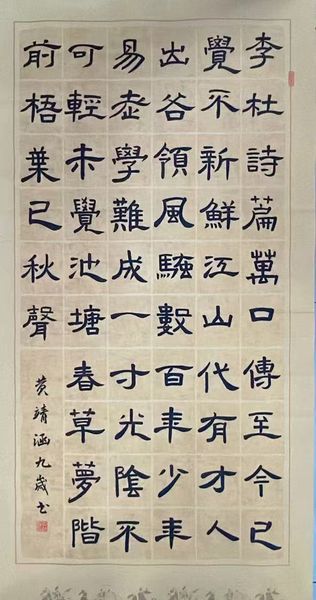 李杜詩篇萬口傳至今已
覺不新鮮江山代有才人
出各領風騷數百年少年
易老學難成一寸光陰不
可輕未覺池塘春草夢階
前梧葉已秋聲
黄靖涵九歲书